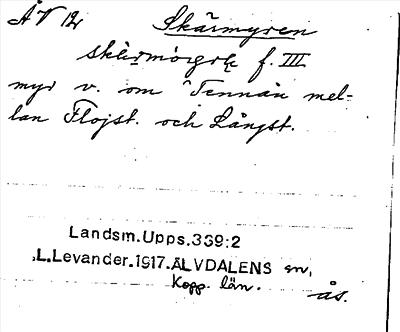 ÅV 12 Skärmyren
f. III
myr v. om Tennån mel-
lan Flojst. och Långst.
Landsm.Upps.339:2
L.Levander.1917.ÄLVDALENS sn,
Kopp. län.
ås.